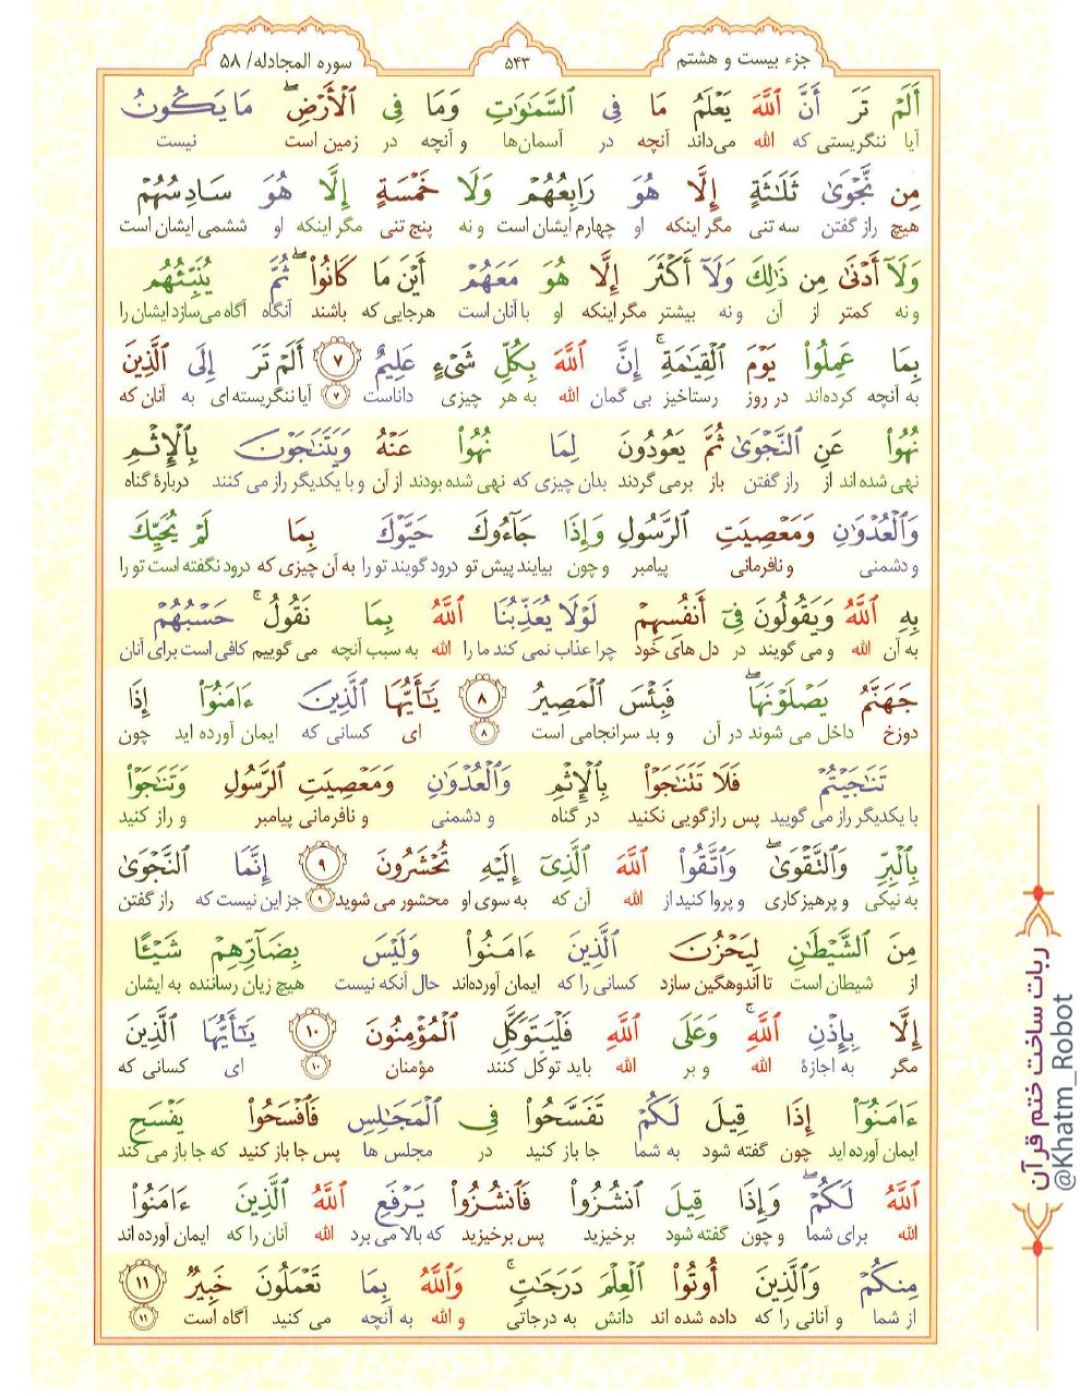 جزء بیست و هشتم
۵۴۳
سوره المجادله/ ۵۸
أَلَمۡ تَرَ أَنَّ ٱللَّهَ يَعۡلَمُ مَا فِي ٱلسَّمَٰوَٰتِ وَمَا فِي ٱلۡأَرۡضِۖ مَا يَكُونُ
آیا ننگریستی که الله می‌داند آنچه در آسمان‌ها و آنچه در زمین است نیست
مِن نَّجۡوَىٰ ثَلَٰثَةٍ إِلَّا هُوَ رَابِعُهُمۡ وَلَا خَمۡسَةٍ إِلَّا هُوَ سَادِسُهُمۡ
هیچ راز گفتن سه تنی مگر اینکه او چهارم ایشان است و نه پنج تنی مگر اینکه او ششمی ایشان است
وَلَآ أَدۡنَىٰ مِن ذَٰلِكَ وَلَآ أَكۡثَرَ إِلَّا هُوَ مَعَهُمۡ أَيۡنَ مَا كَانُواْۖ ثُمَّ يُنَبِّئُهُم
و نه کمتر از آن و نه بیشتر مگر اینکه او با آنان است هرجایی که باشند آنگاه آگاه می‌سازد ایشان را
بِمَا عَمِلُواْ يَوۡمَ ٱلۡقِيَٰمَةِۚ إِنَّ ٱللَّهَ بِكُلِّ شَيۡءٍ عَلِيمٌ ۷ أَلَمۡ تَرَ إِلَى ٱلَّذِينَ
به آنچه کرده‌اند در روز رستاخیز بی گمان الله به هر چیزی داناست ۷ آیا ننگریسته ای به آنان که
نُهُواْ عَنِ ٱلنَّجۡوَىٰ ثُمَّ يَعُودُونَ لِمَا نُهُواْ عَنۡهُ وَيَتَنَٰجَوۡنَ بِٱلۡإِثۡمِ
نهی شده اند از راز گفتن باز برمی گردند بدان چیزی که نهی شده بودند از آن و با یکدیگر راز می کنند دربارهٔ گناه
وَٱلۡعُدۡوَٰنِ وَمَعۡصِيَتِ ٱلرَّسُولِ وَإِذَا جَآءُوكَ حَيَّوۡكَ بِمَا لَمۡ يُحَيِّكَ
و دشمنی و نافرمانی پیامبر و چون بیایند پیش تو درود گویند تو را به آن چیزی که درود نگفته است تو را
بِهِ ٱللَّهُ وَيَقُولُونَ فِيٓ أَنفُسِهِمۡ لَوۡلَا يُعَذِّبُنَا ٱللَّهُ بِمَا نَقُولُۚ حَسۡبُهُمۡ
به آن الله و می گویند در دل های خود چرا عذاب نمی کند ما را الله به سبب آنچه می گوییم کافی است برای آنان
جَهَنَّمُ يَصۡلَوۡنَهَاۖ فَبِئۡسَ ٱلۡمَصِيرُ ۸ يَٰٓأَيُّهَا ٱلَّذِينَ ءَامَنُوٓاْ إِذَا
دوزخ داخل می شوند در آن و بد سرانجامی است ۸ ای کسانی که ایمان آورده اید چون
تَنَٰجَيۡتُمۡ فَلَا تَتَنَٰجَوۡاْ بِٱلۡإِثۡمِ وَٱلۡعُدۡوَٰنِ وَمَعۡصِيَتِ ٱلرَّسُولِ وَتَنَٰجَوۡاْ
با یکدیگر راز می گویید پس رازگویی نکنید در گناه و دشمنی و نافرمانی پیامبر و راز کنید
بِٱلۡبِرِّ وَٱلتَّقۡوَىٰۖ وَٱتَّقُواْ ٱللَّهَ ٱلَّذِيٓ إِلَيۡهِ تُحۡشَرُونَ ۹ إِنَّمَا ٱلنَّجۡوَىٰ
به نیکی و پرهیزکاری و پروا کنید از الله آن که به سوی او محشور می شوید ۹ جز این نیست که راز گفتن
مِنَ ٱلشَّيۡطَٰنِ لِيَحۡزُنَ ٱلَّذِينَ ءَامَنُواْ وَلَيۡسَ بِضَآرِّهِمۡ شَيۡـًٔا
از شیطان است تا اندوهگین سازد کسانی را که ایمان آورده‌اند حال آنکه نیست هیچ زیان رساننده به ایشان
إِلَّا بِإِذۡنِ ٱللَّهِۚ وَعَلَى ٱللَّهِ فَلۡيَتَوَكَّلِ ٱلۡمُؤۡمِنُونَ ۱۰ يَٰٓأَيُّهَا ٱلَّذِينَ
مگر به اجازهٔ الله و بر الله باید توکل کنند مؤمنان ۱۰ ای کسانی که
ءَامَنُوٓاْ إِذَا قِيلَ لَكُمۡ تَفَسَّحُواْ فِي ٱلۡمَجَٰلِسِ فَٱفۡسَحُواْ يَفۡسَحِ
ایمان آورده اید چون گفته شود به شما جا باز کنید در مجلس ها پس جا باز کنید که جا باز می کند
ٱللَّهُ لَكُمۡۖ وَإِذَا قِيلَ ٱنشُزُواْ فَٱنشُزُواْ يَرۡفَعِ ٱللَّهُ ٱلَّذِينَ ءَامَنُواْ
الله برای شما و چون گفته شود برخیزید پس برخیزید که بالا می برد الله آنان را که ایمان آورده اند
مِنكُمۡ وَٱلَّذِينَ أُوتُواْ ٱلۡعِلۡمَ دَرَجَٰتٍۚ وَٱللَّهُ بِمَا تَعۡمَلُونَ خَبِيرٌ ۱۱
از شما و آنانی را که داده شده اند دانش به درجاتی و الله به آنچه می کنید آگاه است ۱۱
ربات ساخت ختم قرآن
@Khatm_Robot